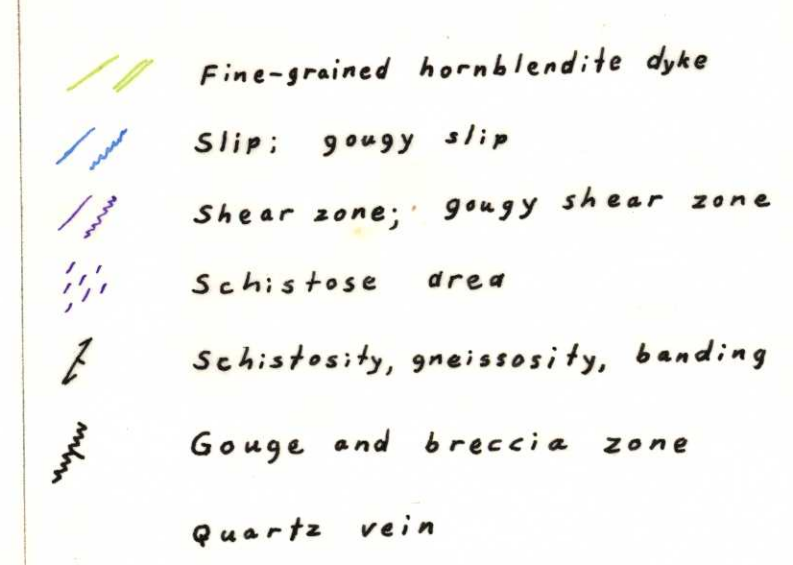 Fine-grained hornblendite dyke
Slip; gougy slip
Shear zone; gougy shear zone
Schistose area
Schistosity, gneissosity, banding
Gouge and breccia zone
Quartz vein